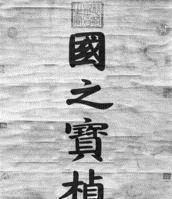 國之寶楨